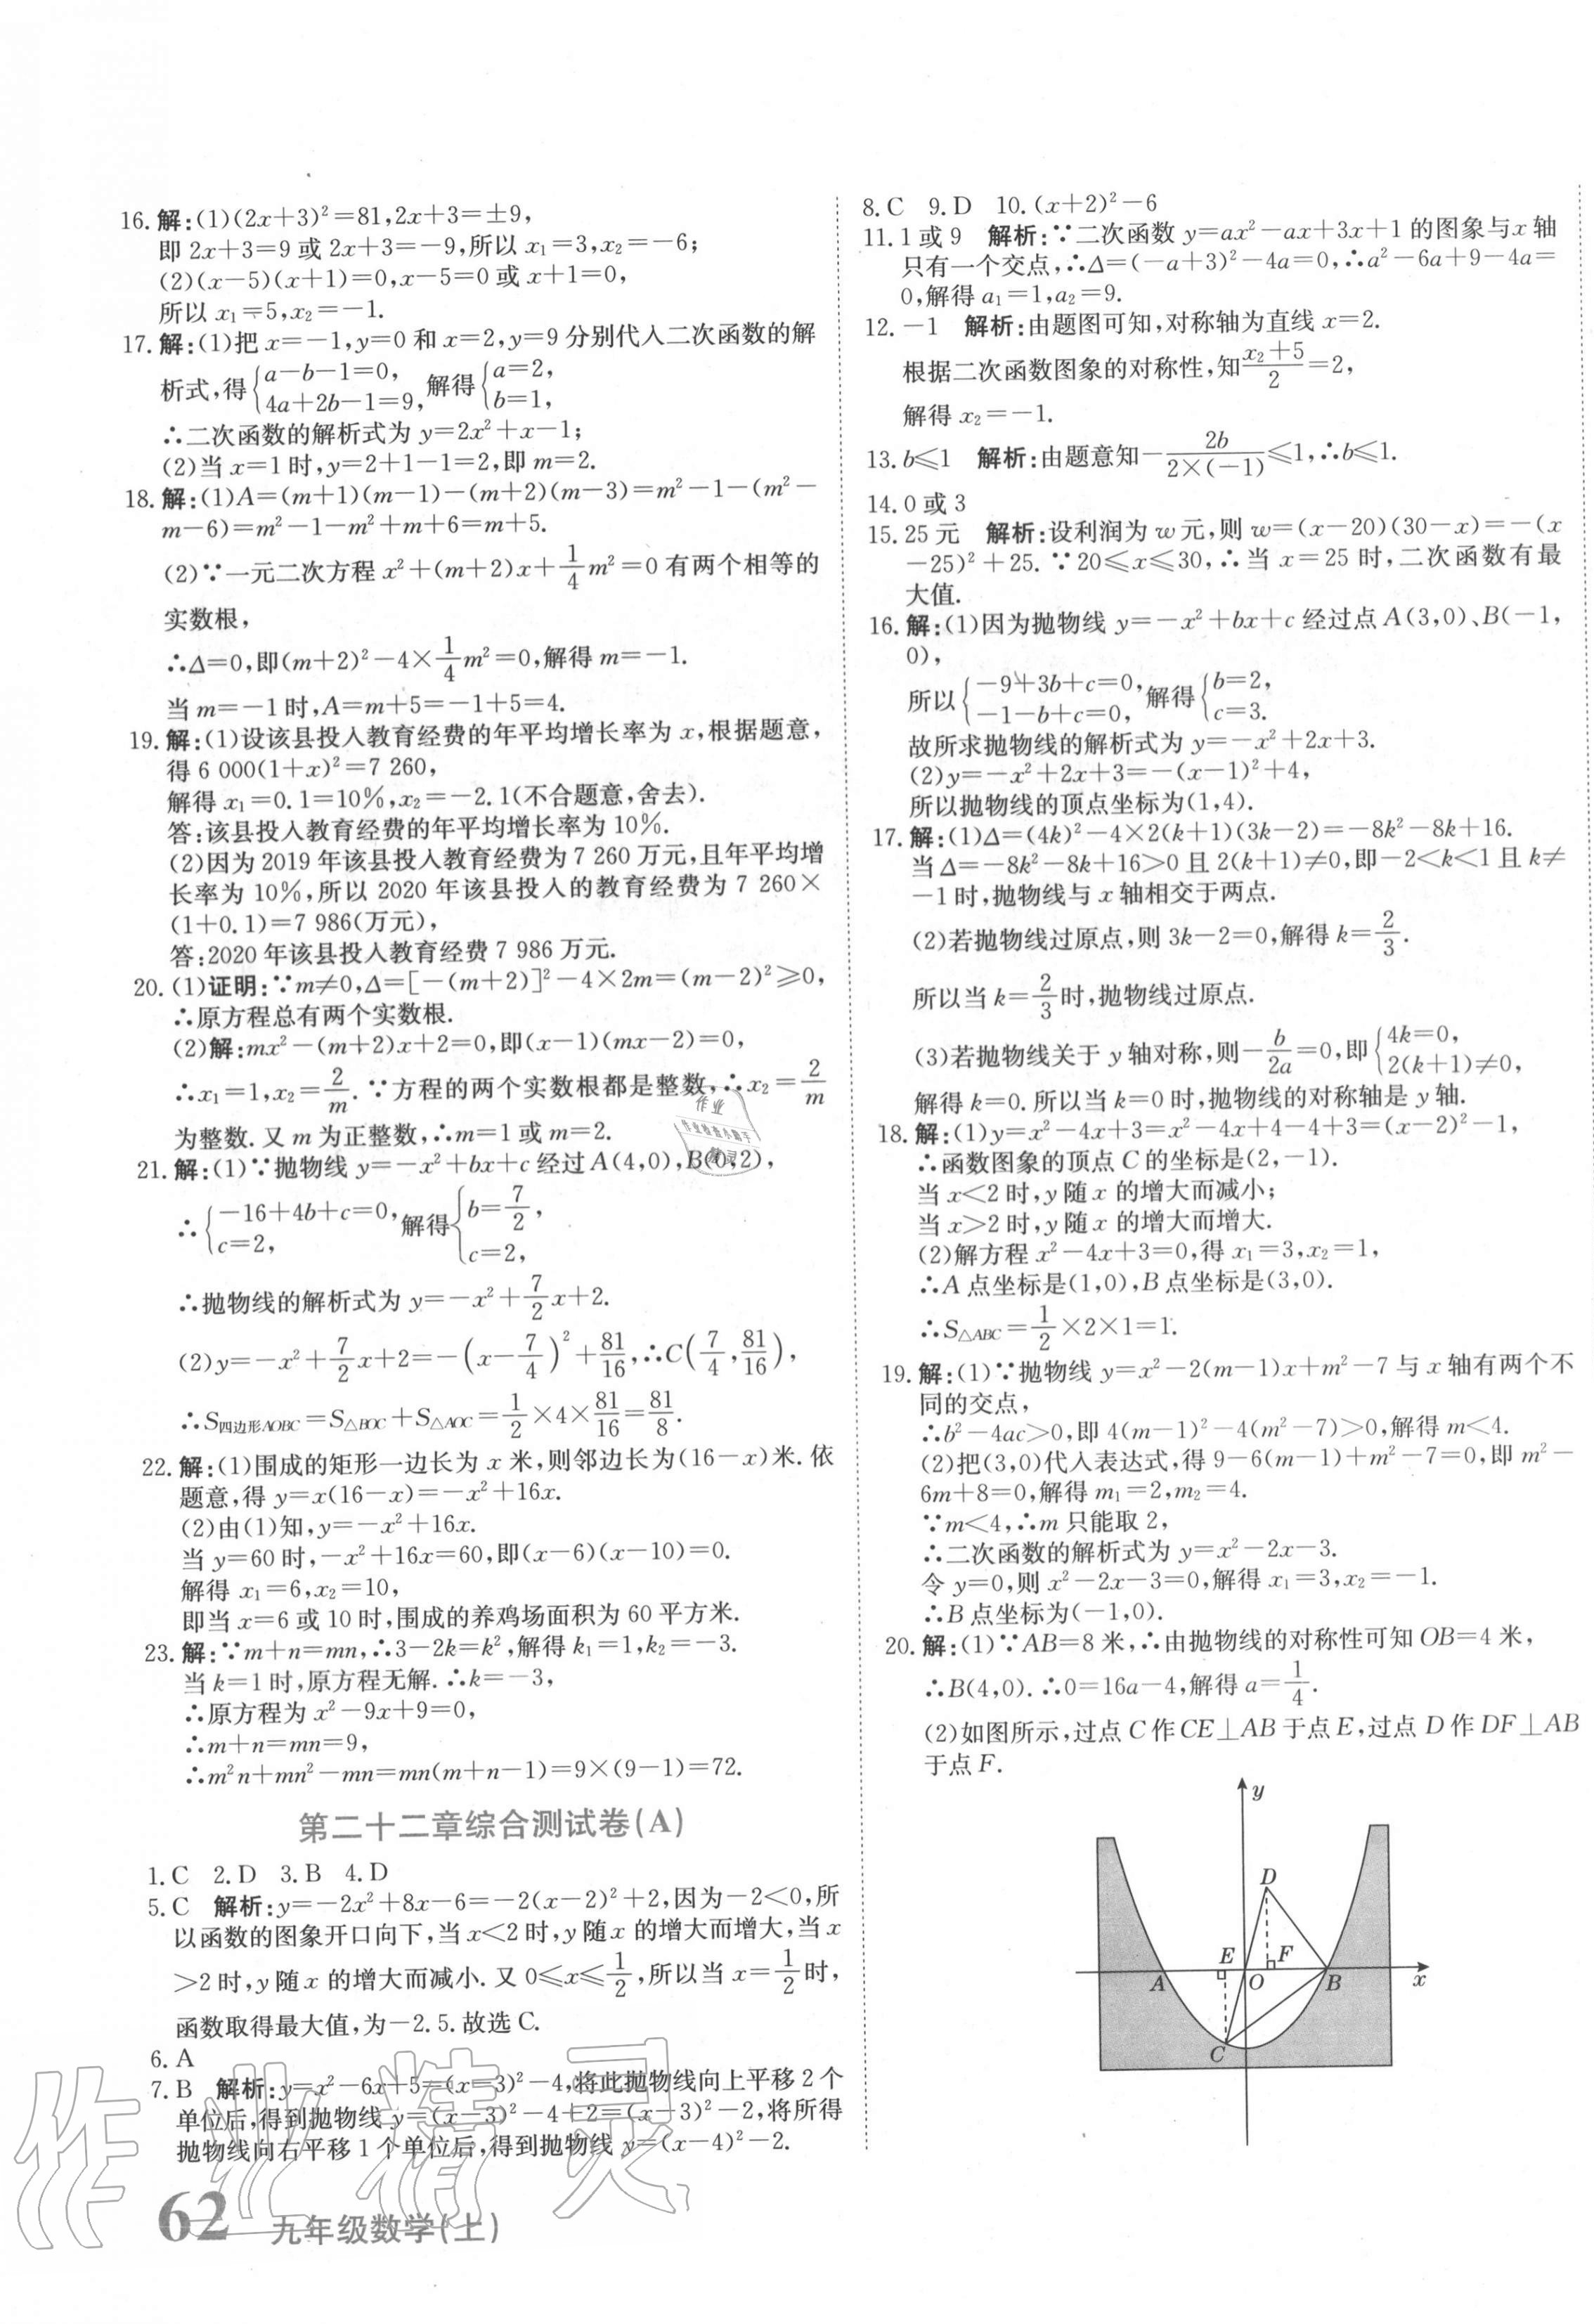 16.解:(1)(2x+3)²=81,2x+3=±9,
即 2x+3=9 或 2x+3=-9,所以 x₁=3,x₂=-6;
(2)(x-5)(x+1)=0,x-5=0 或 x+1=0,
所以 x₁=5,x₂=-1.
17.解:(1)把 x=-1,y=0 和 x=2,y=9 分别代入二次函数的解
析式,得{a-b-1=0, 4a+2b-1=9, 解得{a=2, b=1,
∴二次函数的解析式为 y=2x²+x-1;
(2)当 x=1 时,y=2+1-1=2,即 m=2.
18.解:(1)A=(m+1)(m-1)-(m+2)(m-3)=m²-1-(m²-
m-6)=m²-1-m²+m+6=m+5.
(2)∵一元二次方程 x²+(m+2)x+1/4 m²=0 有两个相等的
实数根,
∴Δ=0,即(m+2)²-4×1/4 m²=0,解得 m=-1.
当 m=-1 时,A=m+5=-1+5=4.
19.解:(1)设该县投入教育经费的年平均增长率为 x,根据题意,
得 6 000(1+x)²=7 260,
解得 x₁=0.1=10%,x₂=-2.1(不合题意,舍去).
答:该县投入教育经费的年平均增长率为 10%.
(2)因为 2019 年该县投入教育经费为 7 260 万元,且年平均增
长率为 10%,所以 2020 年该县投入的教育经费为 7 260×
(1+0.1)=7 986(万元),
答:2020 年该县投入教育经费 7 986 万元.
20.(1)证明:∵m≠0,Δ=[-(m+2)]²-4×2m=(m-2)²≥0,
∴原方程总有两个实数根.
(2)解:mx²-(m+2)x+2=0,即(x-1)(mx-2)=0,
∴x₁=1,x₂=2/m.∵方程的两个实数根都是整数,∴x₂=2/m
为整数.又 m 为正整数,∴m=1 或 m=2.
21.解:(1)∵抛物线 y=-x²+bx+c 经过 A(4,0),B(0,2),
∴{-16+4b+c=0, c=2, 解得{b=7/2, c=2,
∴抛物线的解析式为 y=-x²+7/2 x+2.
(2)y=-x²+7/2 x+2=-(x-7/4)²+81/16,∴C(7/4,81/16),
∴S四边形AOBC=S△BOC+S△AOC=1/2×4×81/16=81/8.
22.解:(1)围成的矩形一边长为 x 米,则邻边长为(16-x)米.依
题意,得 y=x(16-x)=-x²+16x.
(2)由(1)知,y=-x²+16x.
当 y=60 时,-x²+16x=60,即(x-6)(x-10)=0.
解得 x₁=6,x₂=10,
即当 x=6 或 10 时,围成的养鸡场面积为 60 平方米.
23.解:∵m+n=mn,∴3-2k=k²,解得 k₁=1,k₂=-3.
当 k=1 时,原方程无解.∴k=-3,
∴原方程为 x²-9x+9=0,
∴m+n=mn=9,
∴m²n+mn²-mn=mn(m+n-1)=9×(9-1)=72.
第二十二章综合测试卷(A)
1.C 2.D 3.B 4.D
5.C 解析:y=-2x²+8x-6=-2(x-2)²+2,因为-2<0,所
以函数的图象开口向下,当 x<2 时,y 随 x 的增大而增大,当 x
>2 时,y 随 x 的增大而减小.又 0≤x≤1/2,所以当 x=1/2 时,
函数取得最大值,为-2.5.故选 C.
6.A
7.B 解析:y=x²-6x+5=(x-3)²-4,将此抛物线向上平移 2 个
单位后,得到抛物线 y=(x-3)²-4+2=(x-3)²-2,将所得
抛物线向右平移 1 个单位后,得到抛物线 y=(x-4)²-2.
62 九年级数学(上)
8.C 9.D 10.(x+2)²-6
11.1 或 9 解析:∵二次函数 y=ax²-ax+3x+1 的图象与 x 轴
只有一个交点,∴Δ=(-a+3)²-4a=0,∴a²-6a+9-4a=
0,解得 a₁=1,a₂=9.
12.-1 解析:由题图可知,对称轴为直线 x=2.
根据二次函数图象的对称性,知(x₂+5)/2=2,
解得 x₂=-1.
13.b≤1 解析:由题意知-2b/(2×(-1))≤1,∴b≤1.
14.0 或 3
15.25 元 解析:设利润为 w 元,则 w=(x-20)(30-x)=-(x
-25)²+25.∵20≤x≤30,∴当 x=25 时,二次函数有最
大值.
16.解:(1)因为抛物线 y=-x²+bx+c 经过点 A(3,0)、B(-1,
0),
所以{-9+3b+c=0, -1-b+c=0, 解得{b=2, c=3.
故所求抛物线的解析式为 y=-x²+2x+3.
(2)y=-x²+2x+3=-(x-1)²+4,
所以抛物线的顶点坐标为(1,4).
17.解:(1)Δ=(4k)²-4×2(k+1)(3k-2)=-8k²-8k+16.
当 Δ=-8k²-8k+16>0 且 2(k+1)≠0,即-2<k<1 且 k≠
-1 时,抛物线与 x 轴相交于两点.
(2)若抛物线过原点,则 3k-2=0,解得 k=2/3.
所以当 k=2/3 时,抛物线过原点.
(3)若抛物线关于 y 轴对称,则-b/2a=0,即{4k=0, 2(k+1)≠0,
解得 k=0.所以当 k=0 时,抛物线的对称轴是 y 轴.
18.解:(1)y=x²-4x+3=x²-4x+4-4+3=(x-2)²-1,
∴函数图象的顶点 C 的坐标是(2,-1).
当 x<2 时,y 随 x 的增大而减小;
当 x>2 时,y 随 x 的增大而增大.
(2)解方程 x²-4x+3=0,得 x₁=3,x₂=1,
∴A 点坐标是(1,0),B 点坐标是(3,0).
∴S△ABC=1/2×2×1=1.
19.解:(1)∵抛物线 y=x²-2(m-1)x+m²-7 与 x 轴有两个不
同的交点,
∴b²-4ac>0,即 4(m-1)²-4(m²-7)>0,解得 m<4.
(2)把(3,0)代入表达式,得 9-6(m-1)+m²-7=0,即 m²-
6m+8=0,解得 m₁=2,m₂=4.
∵m<4,∴m 只能取 2,
∴二次函数的解析式为 y=x²-2x-3.
令 y=0,则 x²-2x-3=0,解得 x₁=3,x₂=-1.
∴B 点坐标为(-1,0).
20.解:(1)∵AB=8 米,∴由抛物线的对称性可知 OB=4 米,
∴B(4,0).∴0=16a-4,解得 a=1/4.
(2)如图所示,过点 C 作 CE⊥AB 于点 E,过点 D 作 DF⊥AB
于点 F.
y
D
E F
A O B x
C
作业精灵